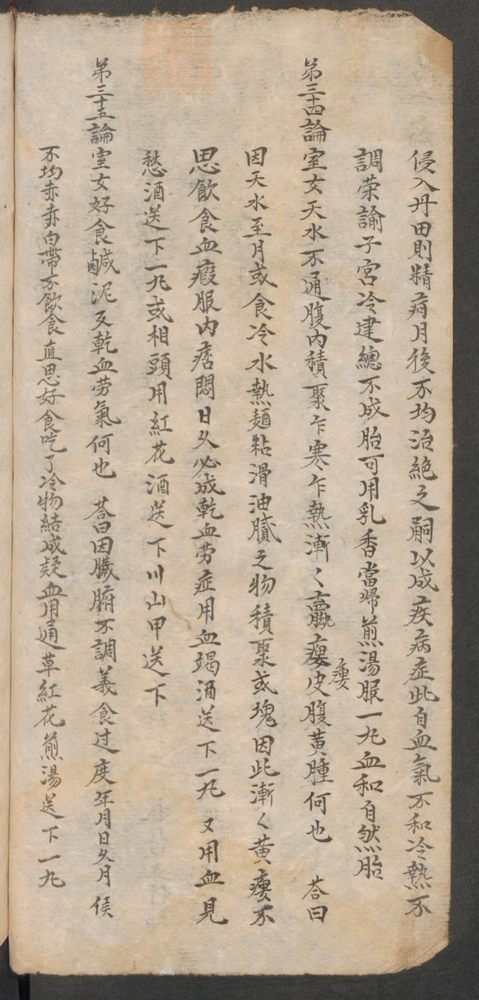 侵入丹田則精痛月後不均治絶之嗣以成疾病症此自血氣不和冷熱不
調荣諭子宮冷建總不成胎可用乳香當帰煎湯服一九血和自然胎
第三十四論室女天水不通腹内積聚乍寒乍熱漸〻羸瘦皮腹黄腫何也 荅曰
瘦
因天水至月或食冷水熱麺粘滑油膩之物積聚或塊因此漸〻黄瘦不
思飲食血瘕服内痞悶日久必成乾血劳症用血竭酒送下一九 又用血見
愁酒送下一九或相頭用紅花酒送下川山甲送下
第三十五論室女好食鹹泥及乾血劳氣何也 荅曰因臟腑不調義食过度年月日久月侯
不均赤赤白帶不飲食直思好食吃了冷物結成疑血用通草紅花煎湯送下一九